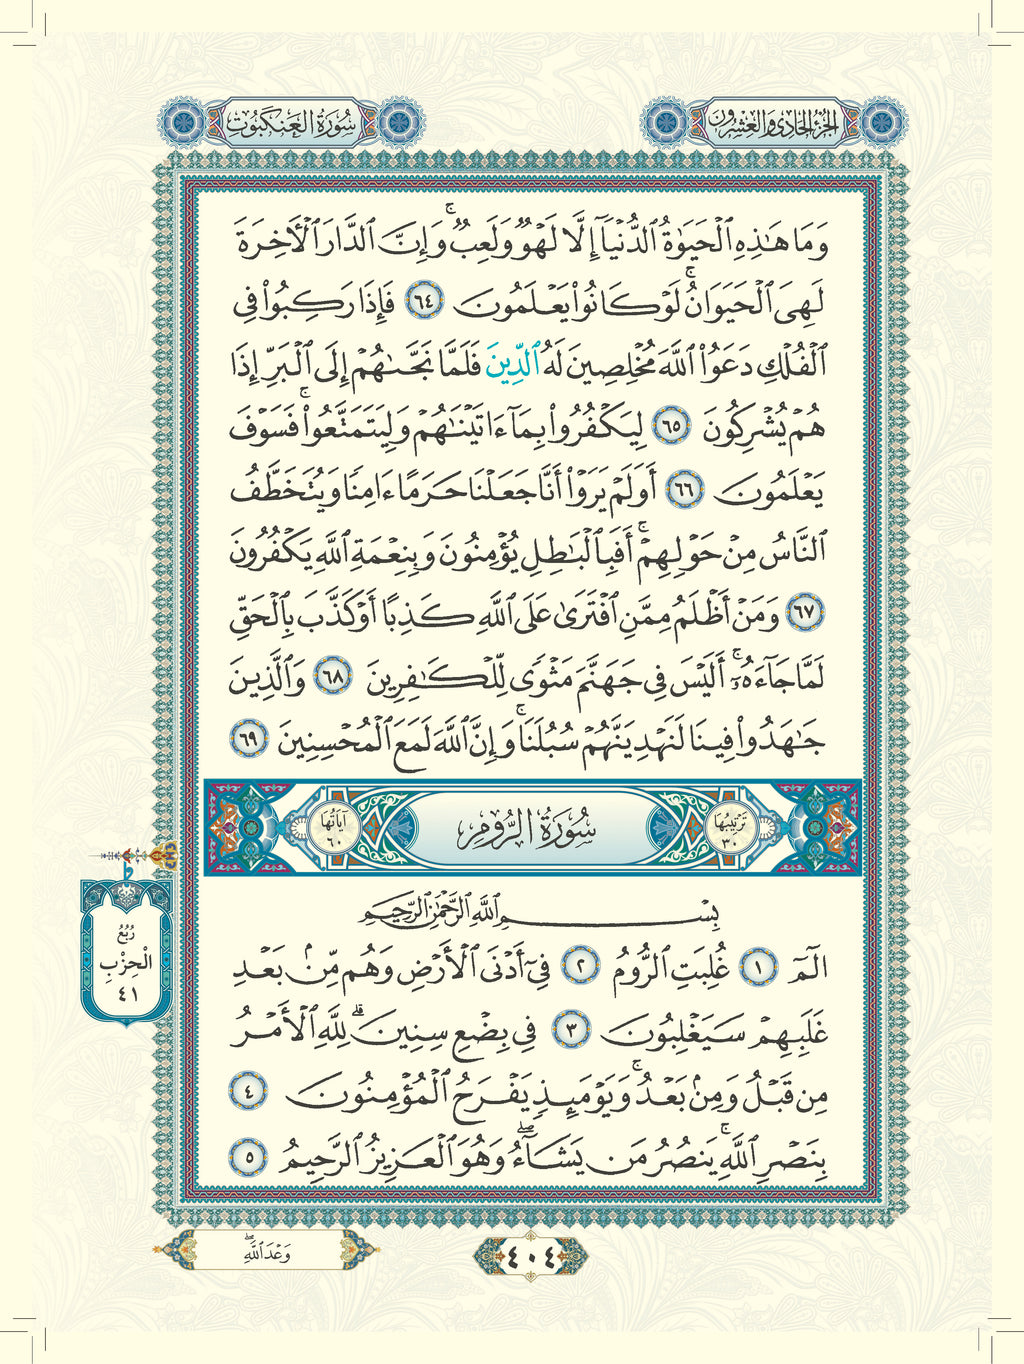 الجزء الحادي والعشرون
سُورَةُ العَنكَبُوتِ
وَمَا هَٰذِهِ ٱلْحَيَوٰةُ ٱلدُّنْيَآ إِلَّا لَهْوٌ وَلَعِبٌ ۚ وَإِنَّ ٱلدَّارَ ٱلْأَخِرَةَ
لَهِىَ ٱلْحَيَوَانُ ۚ لَوْ كَانُوا۟ يَعْلَمُونَ ٦٤ فَإِذَا رَكِبُوا۟ فِى
ٱلْفُلْكِ دَعَوُا۟ ٱللَّهَ مُخْلِصِينَ لَهُ ٱلدِّينَ فَلَمَّا نَجَّىٰهُمْ إِلَى ٱلْبَرِّ إِذَا
هُمْ يُشْرِكُونَ ٦٥ لِيَكْفُرُوا۟ بِمَآ ءَاتَيْنَٰهُمْ وَلِيَتَمَتَّعُوا۟ ۚ فَسَوْفَ
يَعْلَمُونَ ٦٦ أَوَلَمْ يَرَوْا۟ أَنَّا جَعَلْنَا حَرَمًا ءَامِنًا وَيُتَخَطَّفُ
ٱلنَّاسُ مِنْ حَوْلِهِمْ ۚ أَفَبِٱلْبَٰطِلِ يُؤْمِنُونَ وَبِنِعْمَةِ ٱللَّهِ يَكْفُرُونَ
٦٧ وَمَنْ أَظْلَمُ مِمَّنِ ٱفْتَرَىٰ عَلَى ٱللَّهِ كَذِبًا أَوْ كَذَّبَ بِٱلْحَقِّ
لَمَّا جَآءَهُۥٓ ۚ أَلَيْسَ فِى جَهَنَّمَ مَثْوًى لِّلْكَٰفِرِينَ ٦٨ وَٱلَّذِينَ
جَٰهَدُوا۟ فِينَا لَنَهْدِيَنَّهُمْ سُبُلَنَا ۚ وَإِنَّ ٱللَّهَ لَمَعَ ٱلْمُحْسِنِينَ ٦٩
تَرْتِيبُهَا ٣٠
سُورَةُ الرُّومِ
آيَاتُهَا ٦٠
بِسْمِ ٱللَّهِ ٱلرَّحْمَٰنِ ٱلرَّحِيمِ
الٓمٓ ١ غُلِبَتِ ٱلرُّومُ ٢ فِىٓ أَدْنَى ٱلْأَرْضِ وَهُم مِّنۢ بَعْدِ
غَلَبِهِمْ سَيَغْلِبُونَ ٣ فِى بِضْعِ سِنِينَ ۗ لِلَّهِ ٱلْأَمْرُ
مِن قَبْلُ وَمِنۢ بَعْدُ ۚ وَيَوْمَئِذٍ يَفْرَحُ ٱلْمُؤْمِنُونَ ٤
بِنَصْرِ ٱللَّهِ ۚ يَنصُرُ مَن يَشَآءُ ۖ وَهُوَ ٱلْعَزِيزُ ٱلرَّحِيمُ ٥
رُبُعُ
الْحِزْبِ
٤١
٤٠٤
وَعْدَ ٱللَّهِ ۖ